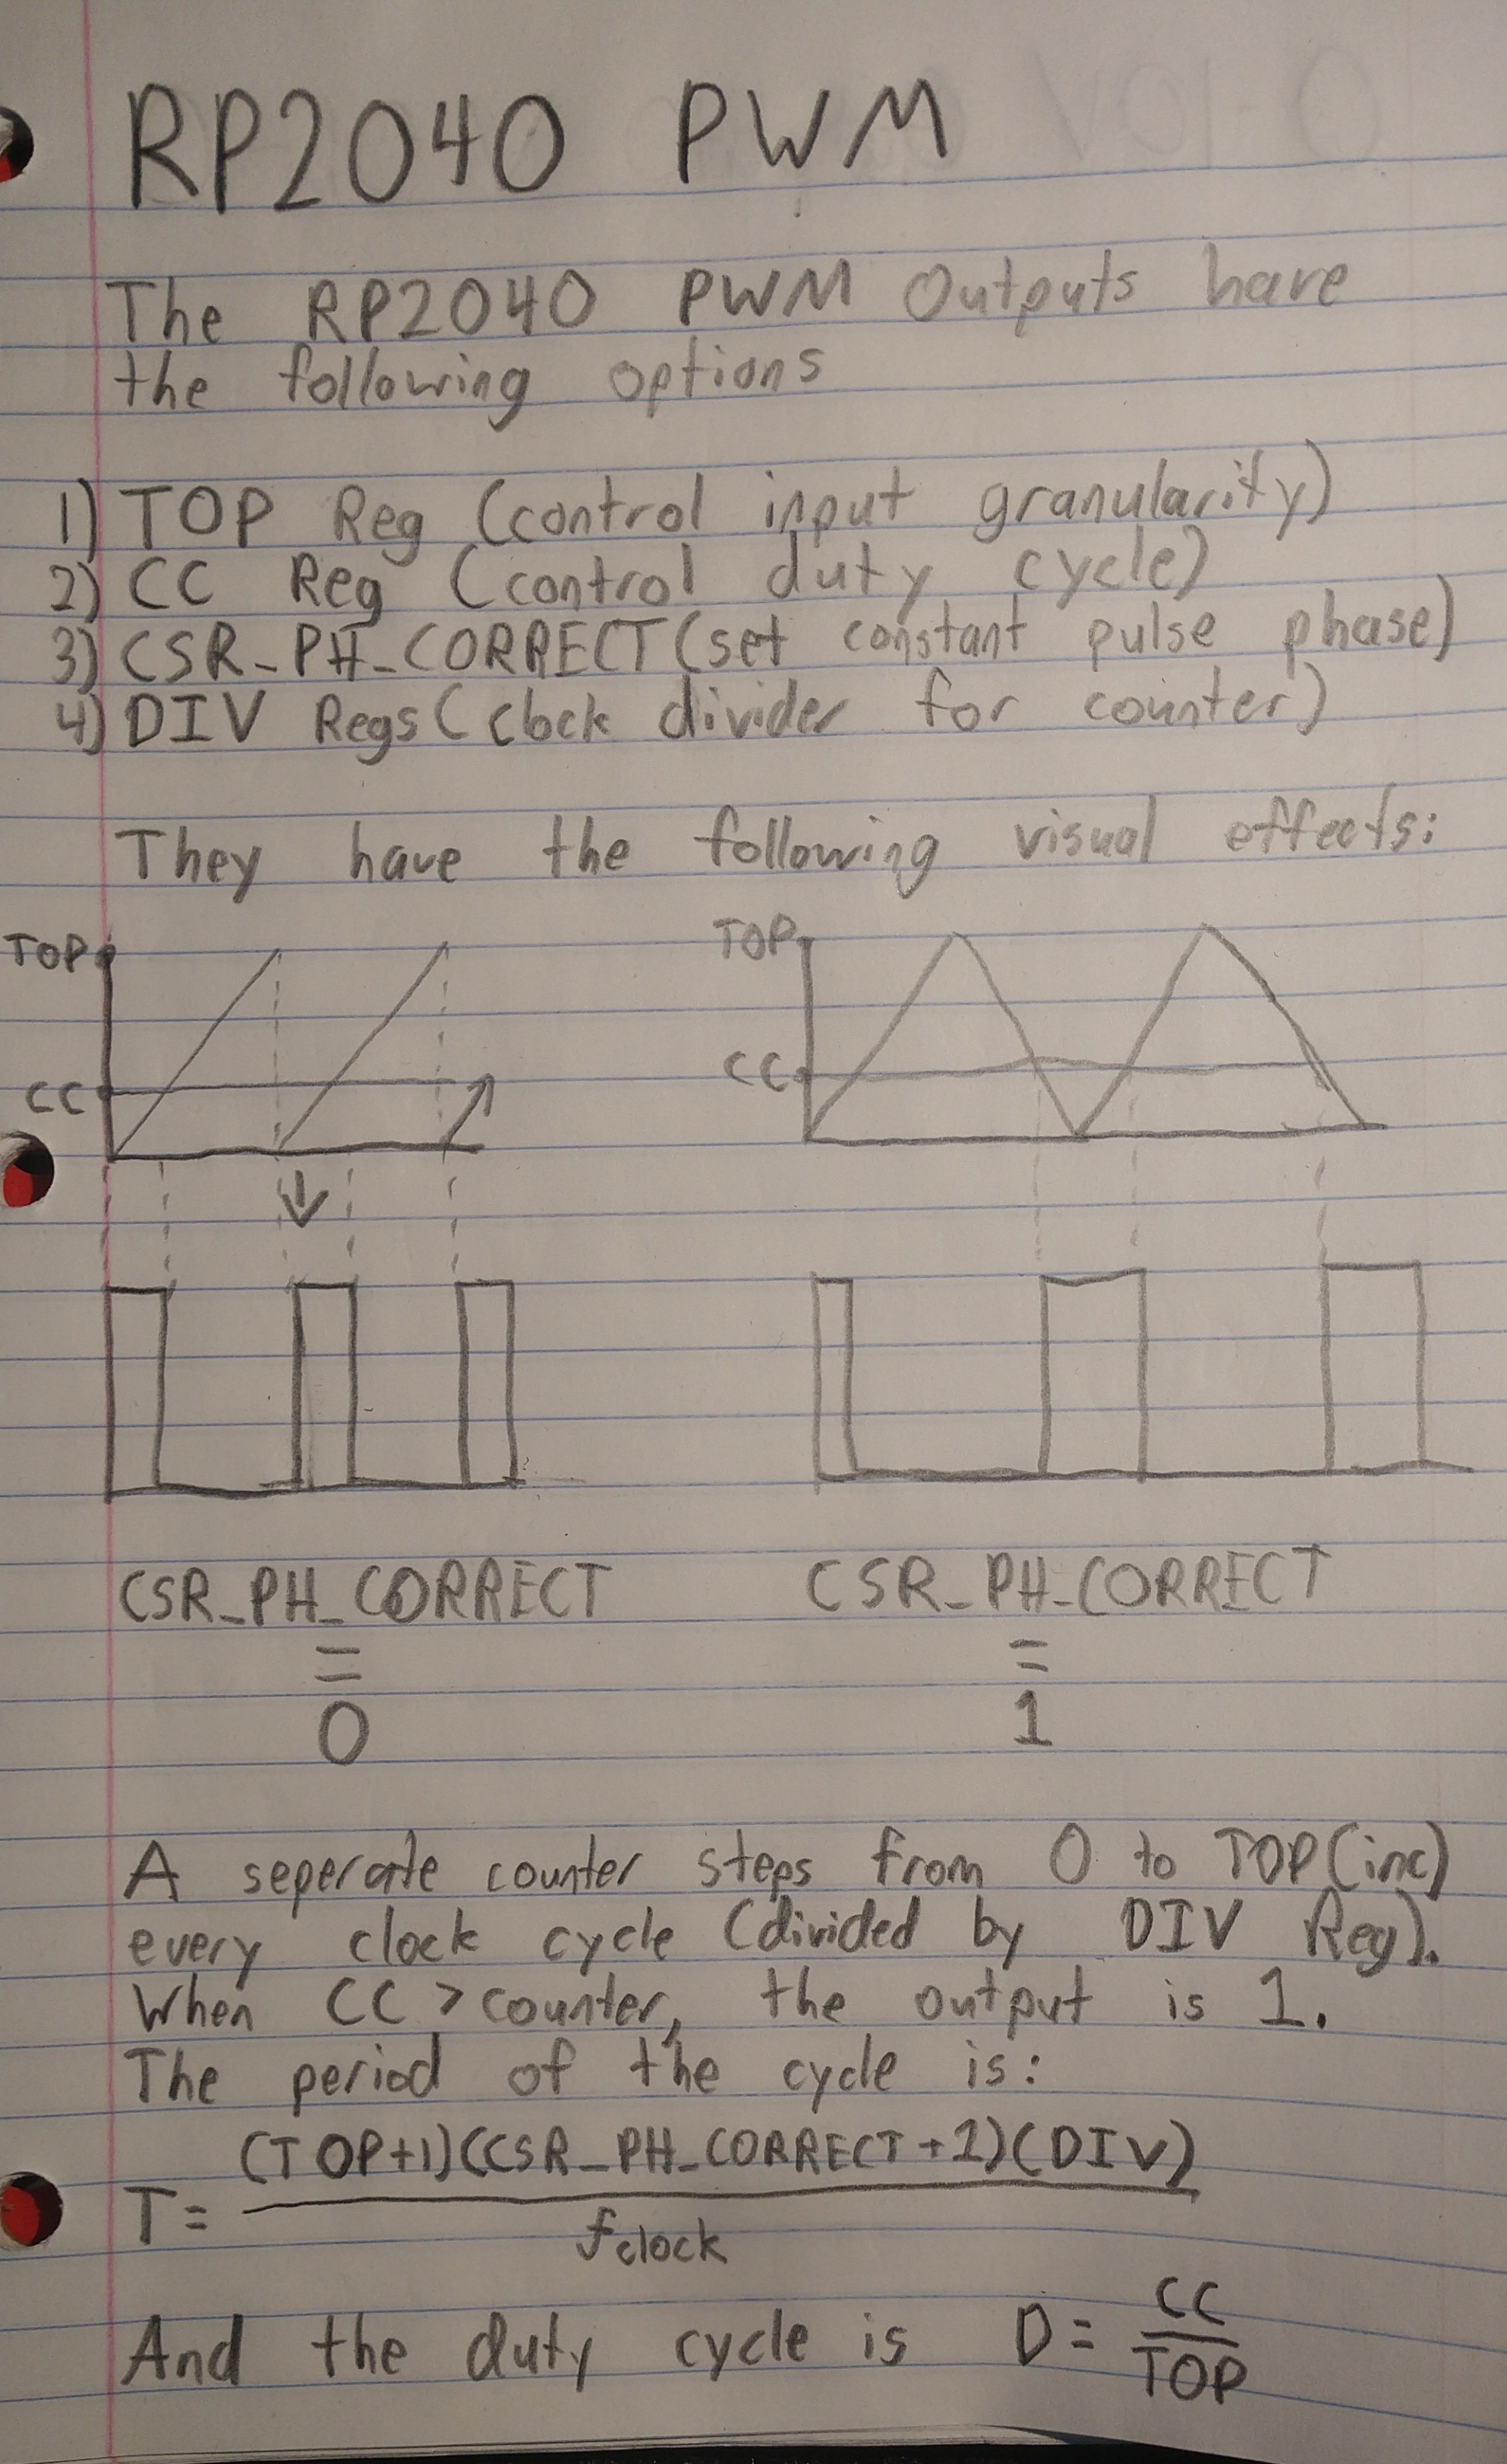 RP2040 PWM
The RP2040 PWM Outputs have
the following options
1) TOP Reg (control input granularity)
2) CC Reg (control duty cycle)
3) CSR_PH_CORRECT (set constant pulse phase)
4) DIV Regs (clock divider for counter)
They have the following visual effects:
TOP
CC
TOP
CC
CSR_PH_CORRECT
=
0
CSR_PH_CORRECT
=
1
A seperate counter steps from 0 to TOP (inc)
every clock cycle (divided by DIV Reg).
When CC > counter, the output is 1.
The period of the cycle is:
T = (TOP+1)(CSR_PH_CORRECT+1)(DIV) / fclock
And the duty cycle is D = CC / TOP